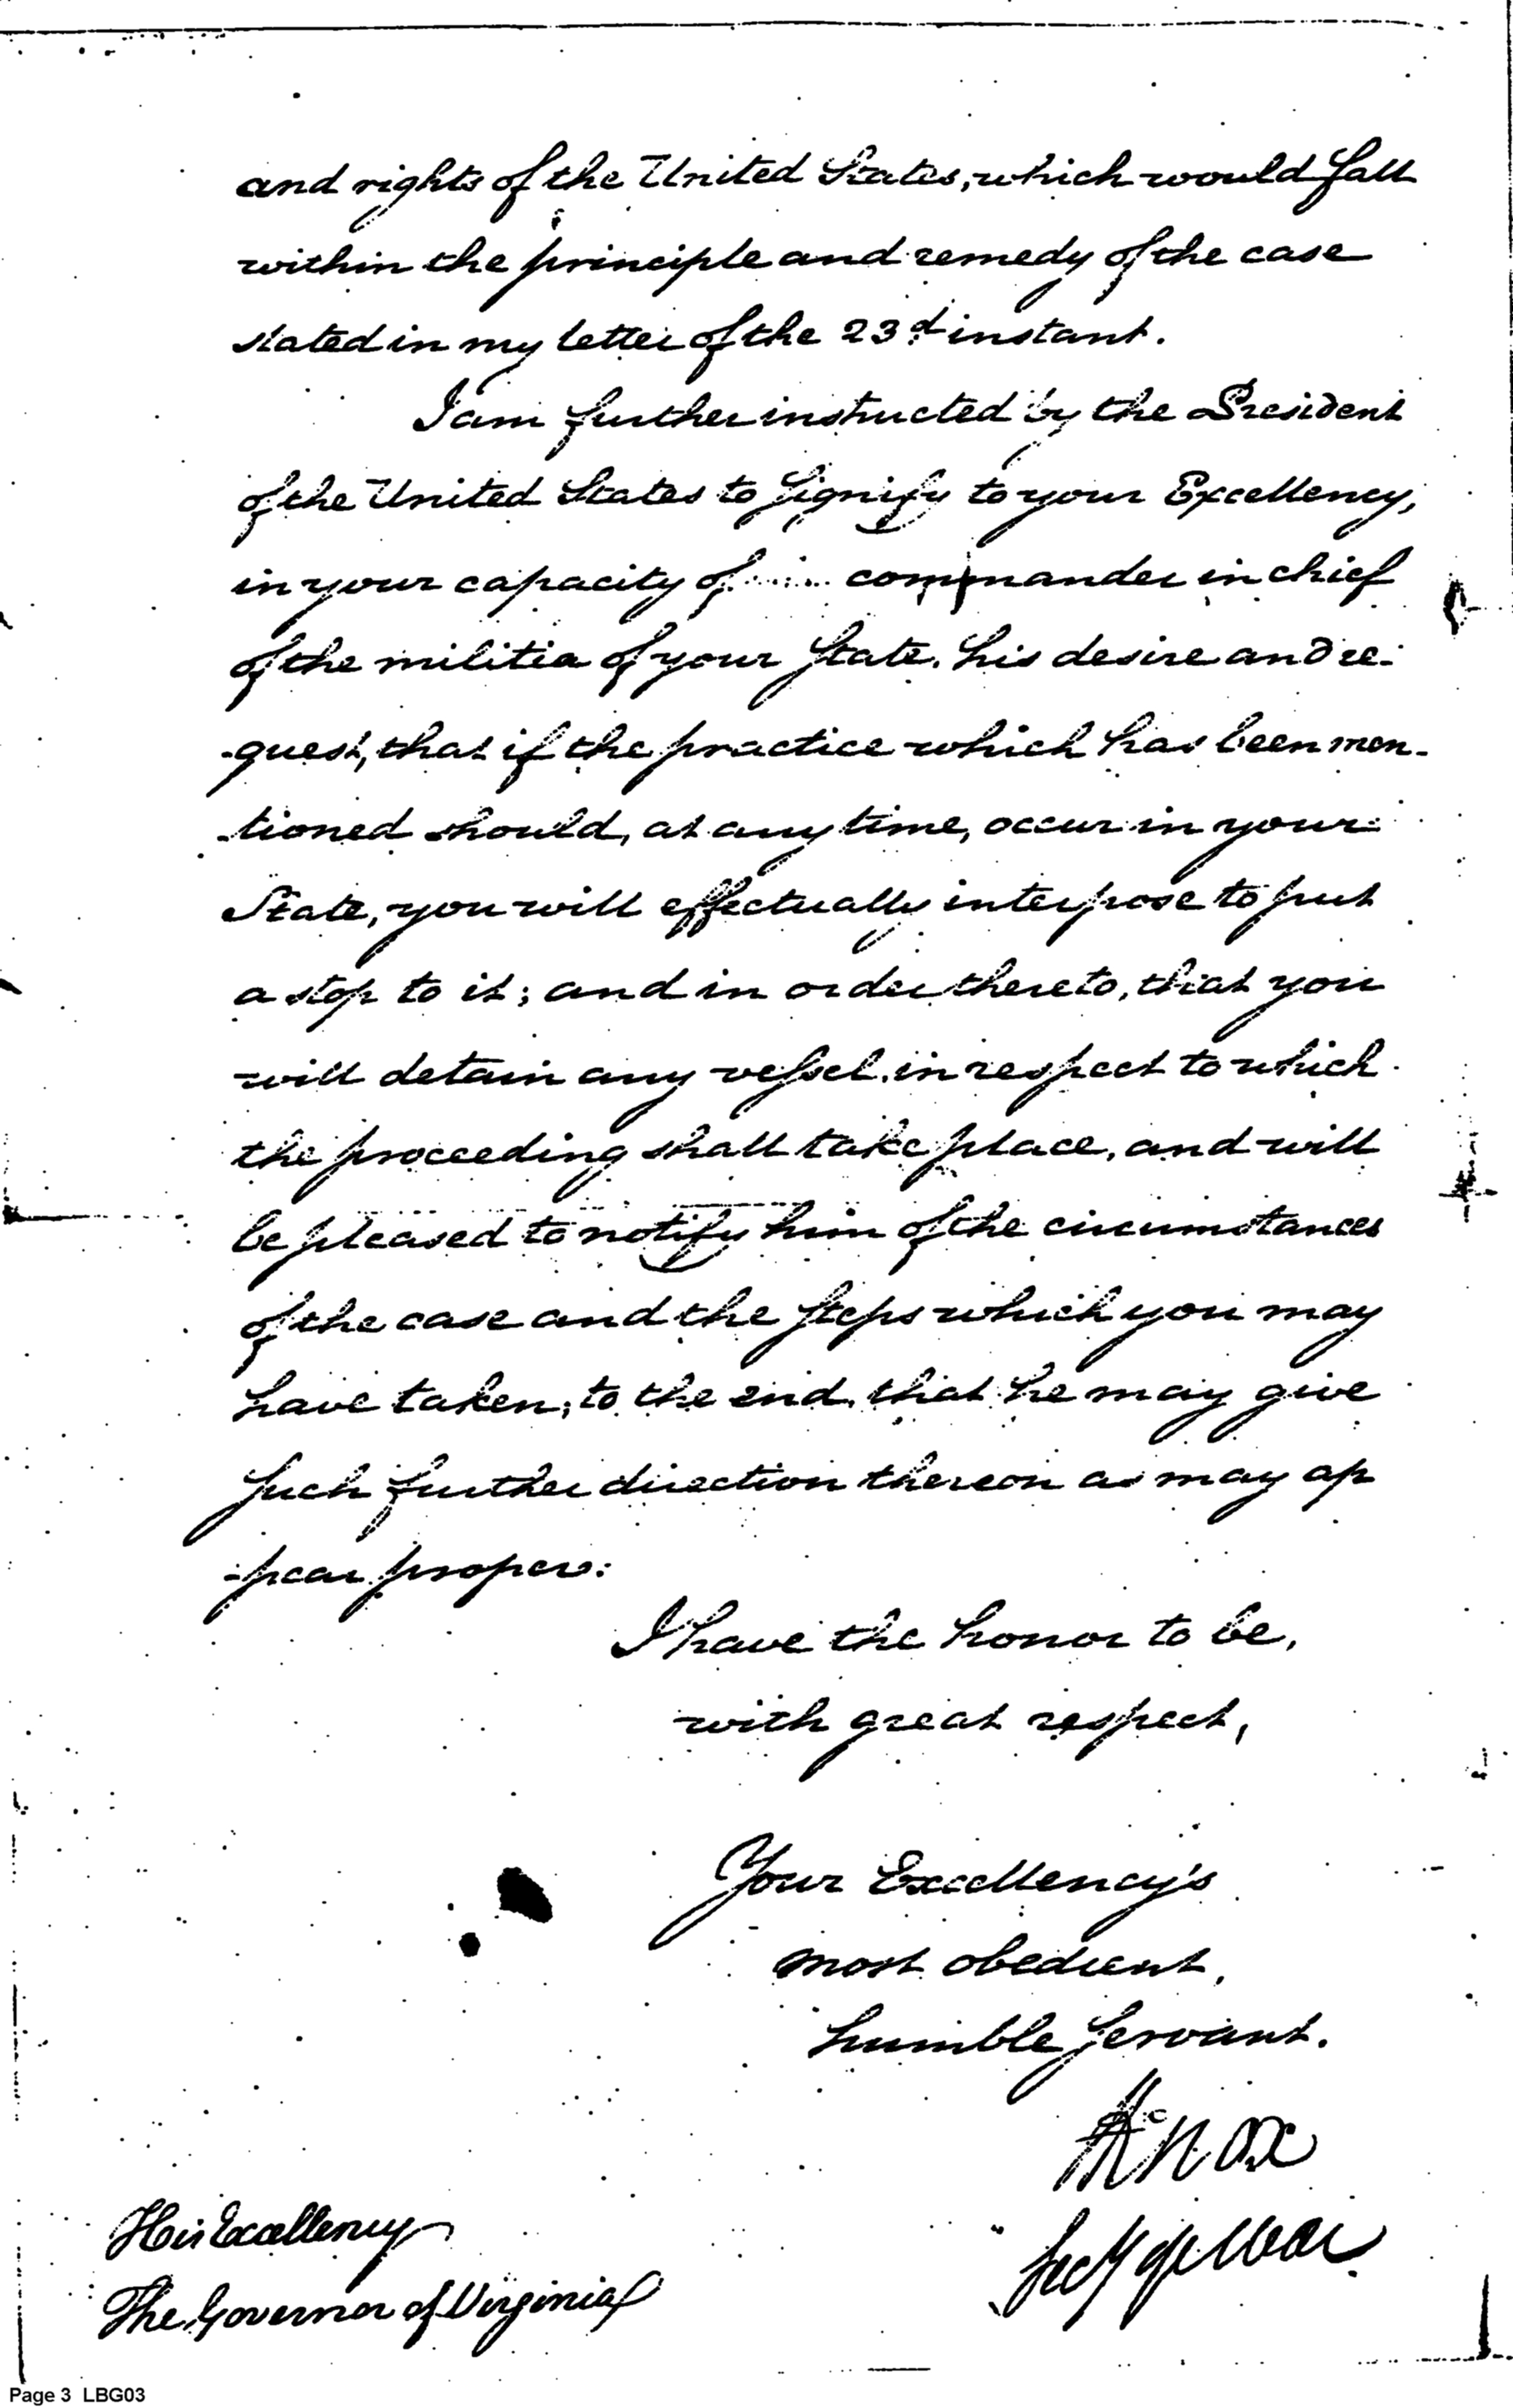 and rights of the United States, which would fall
within the principle and remedy of the case
stated in my letter of the 23d instant.
I am further instructed by the President
of the United States to signify to your Excellency,
in your capacity of commander in chief
of the militia of your State, his desire and re-
-quest, that if the practice which has been men-
-tioned should, at any time, occur in your
State, you will effectually interpose to put
a stop to it; and in order thereto, that you
will detain any vessel, in respect to which
the proceeding shall take place, and will
be pleased to notify him of the circumstances
of the case and the steps which you may
have taken, to the end, that he may give
such further direction thereon as may ap
-pear proper:
I have the honor to be,
with great respect,
Your Excellency's
most obedient,
humble servant.
HKnox
Secy of War
His Excellency
The Governor of Virginia
Page 3 LBG03